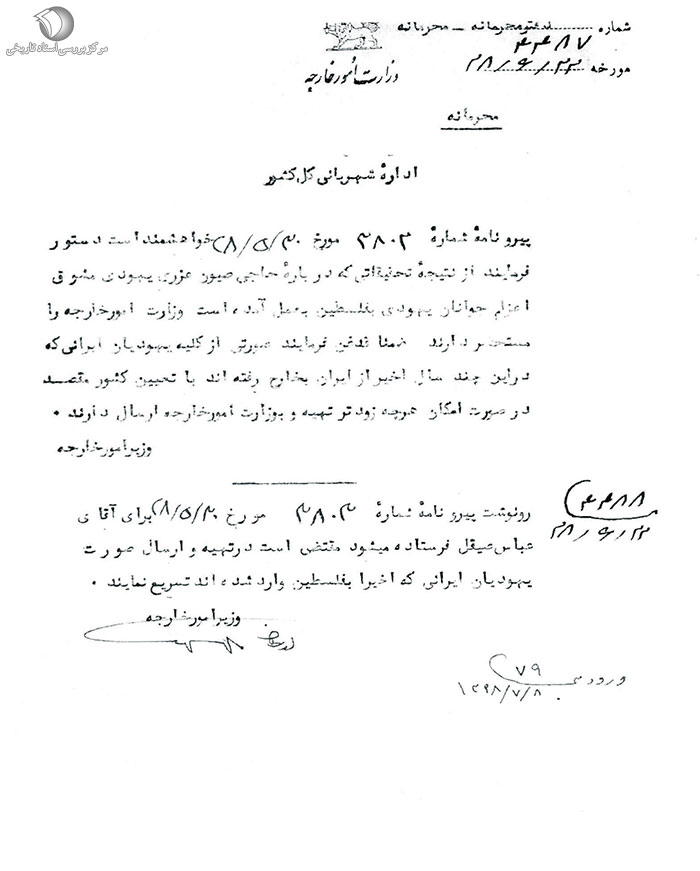 مرکز بررسی اسناد تاریخی
شماره محرمانه - محرمانه
۴۴۸۷
مورخه ۲۸/۶/۲۲
وزارت اُمور خارجه
محرمانه
ادارهٔ شهربانی کل کشور
پیرو نامهٔ شمارهٔ ۳۸۰۳ مورخ ۲۸/۵/۳۰ خواهشمند است دستور
فرمایند از نتیجهٔ تحقیقاتی که دربارهٔ حاجی صیون عزری یهودی مشوق
اعزام جوانان یهودی بفلسطین بعمل آمده است وزارت امورخارجه را
مستحضر دارند ضمنا قدغن فرمایند صورتی از کلیه یهودیان ایرانی که
دراین چند سال اخیر از ایران بخارج رفته اند با تعیین کشور مقصد
در صورت امکان هرچه زودتر تهیه و بوزارت امورخارجه ارسال دارند ۰
وزیر امورخارجه
رونوشت پیرو نامهٔ شمارهٔ ۳۸۰۳ مورخ ۲۸/۵/۳۰ برای آقای
عباس صیقل فرستاده میشود مقتضی است در تهیه و ارسال صورت
یهودیان ایرانی که اخیرا بفلسطین وارد شده اند تسریع نمایند ۰
وزیر امورخارجه
۴۴۸۸
۲۸/۶/۲۲
ورود
۷۹
۱۳۲۸/۷/۸